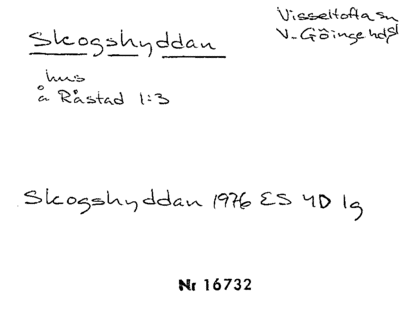 Skogshyddan
Visseltofta sn
V. Göinge hd
hus
å Råstad 1:3
Skogshyddan 1976 ES 4D 1g
Nr 16732